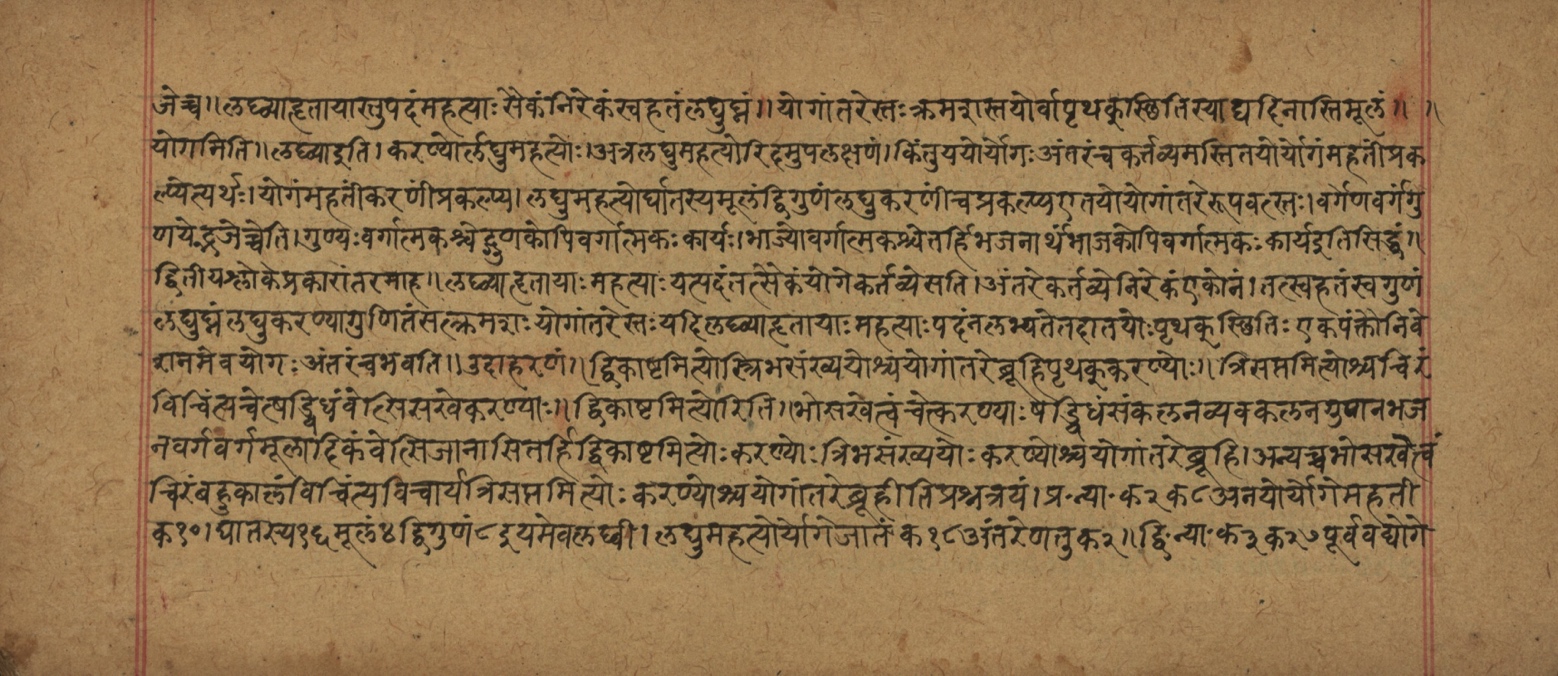 जेच्च॥लघ्व्याहृतायास्तुपदंमहत्याःसैकंनिरेकंस्वहतंलघुघ्नं॥योगांतरेस्तःक्रमशस्तयोर्वापृथक्स्थितिस्याद्यदिनास्तिमूलं॥ ॥
योगमिति॥लघ्व्याइति।करण्योर्लघुमहत्योः।अत्रलघुमहत्योरिहमुपलक्षणं।किंतुययोर्योगःअंतरंच्चकर्तव्यमस्तितयोर्योगंमहतींप्रक
ल्प्येत्यर्थः।योगंमहतींकरणींप्रकल्प्य।लघुमहत्योर्घातस्यमूलंद्विगुणंलघुकरणींचप्रकल्प्यएतयोयोगांतरेरूपवत्स्तः।वर्गेणवर्गंगु
णयेद्भजेच्चेति।गुण्यःवर्गात्मकश्चेद्गुणकोपिवर्गात्मकःकार्यः।भाज्योवर्गात्मकश्चेतर्हिभजनार्थंभाजकोपिवर्गात्मकःकार्यइतिसिद्धं॥
द्वितीयश्लोकेप्रकारांतरमाह॥लघ्व्याहृतायाःमहत्याःयत्पदंतत्सैकंयोगेकर्तव्येसति।अंतरेकर्तव्येनिरेकंएकोनं।तत्स्वहतंस्वगुणं
लघुघ्नंलघुकरण्यागुणितंसत्क्रमशःयोगांतरेस्तःयदिलघ्व्याहृतायाःमहत्याःपदंनलभ्यतेतदातयोःपृथक्स्थितिःएकपंक्तोनिवे
शनमेवयोगःअंतरंचभवति॥उदाहरणं॥द्विकाष्टमित्योस्त्रिभसंख्ययोश्चयोगांतरेब्रूहिपृथक्करण्योः॥त्रिसप्तमित्योश्चचिरं
विचिंत्यचेत्षड्विधंवेत्सिसखेकरण्याः॥द्विकाष्टमित्योरिति॥भोसखेत्वंचेत्करण्याःषड्विधंसंकलनव्यवकलनगुणनभज
नवर्गवर्गमूलादिकंवेत्सिजानासितर्हिद्विकाष्टमित्योःकरण्योःत्रिभसंख्ययोःकरण्योश्चयोगांतरेब्रूहि।अन्यच्चभोसखेत्वं
चिरंबहुकालंविचिंत्यविचार्यत्रिसप्तमित्योःकरण्योश्चयोगांतरेब्रूहीतिप्रश्नत्रयं।प्र॰न्या॰क२क८अनयोर्योगेमहती
क१०।घातस्य१६मूलं४द्विगुणं८इयमेवलघ्वी।लघुमहत्योर्योगेजातंक१८अंतरेणतुक२॥द्वि॰न्या॰क३क२७पूर्ववद्योगे